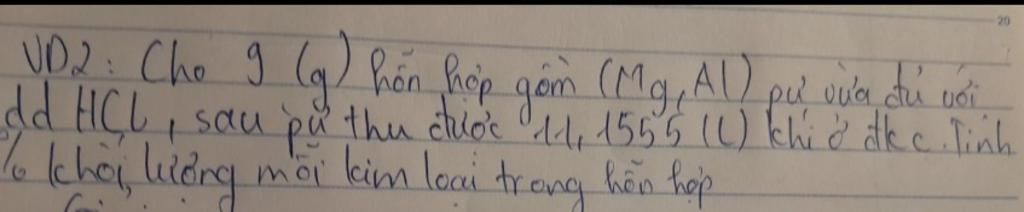 20
VD2: Cho 9 (g) hỗn hợp gồm (Mg, Al) pứ vừa đủ với
dd HCl, sau pứ thu được 11,1555 (L) khí ở đkc. Tính
% khối lượng mỗi kim loại trong hỗn hợp